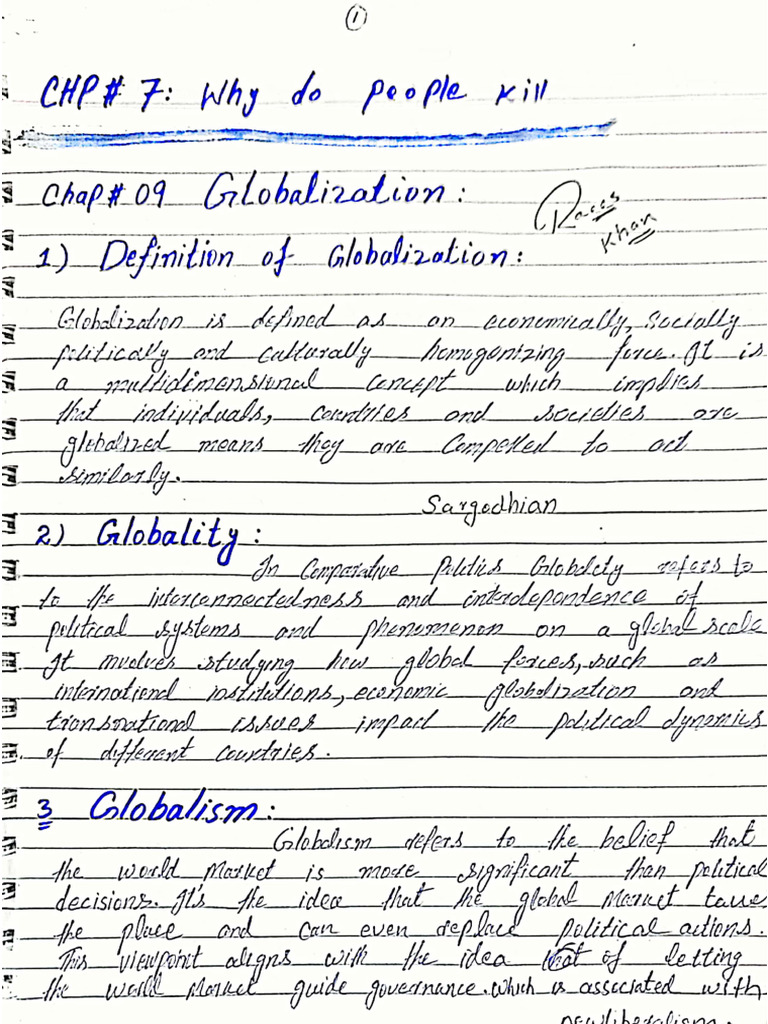 1
CHP# 7: Why do people kill
Chap# 09 Globalization:
Raees
Khan
1) Definition of Globalization:
Globalization is defined as an economically, socially
politically and culturally homogenizing force. It is
a multidimensional concept which implies
that individuals, countries and societies are
globalized means they are compelled to act
similarly.
Sargodhian
2) Globality:
In Comparative Politics Globality refers to
to the interconnectedness and interdependence of
political systems and phenomenon on a global scale
It involves studying how global forces, such as
international institutions, economic globalization and
transnational issues impact the political dynamics
of different countries.
3 Globalism:
Globalism refers to the belief that
the world Market is more significant than political
decisions. It's the idea that the global Market takes
the place and can even replace political actions.
This viewpoint aligns with the idea that of letting
the world Market guide governance. which is associated with
newliberalism.